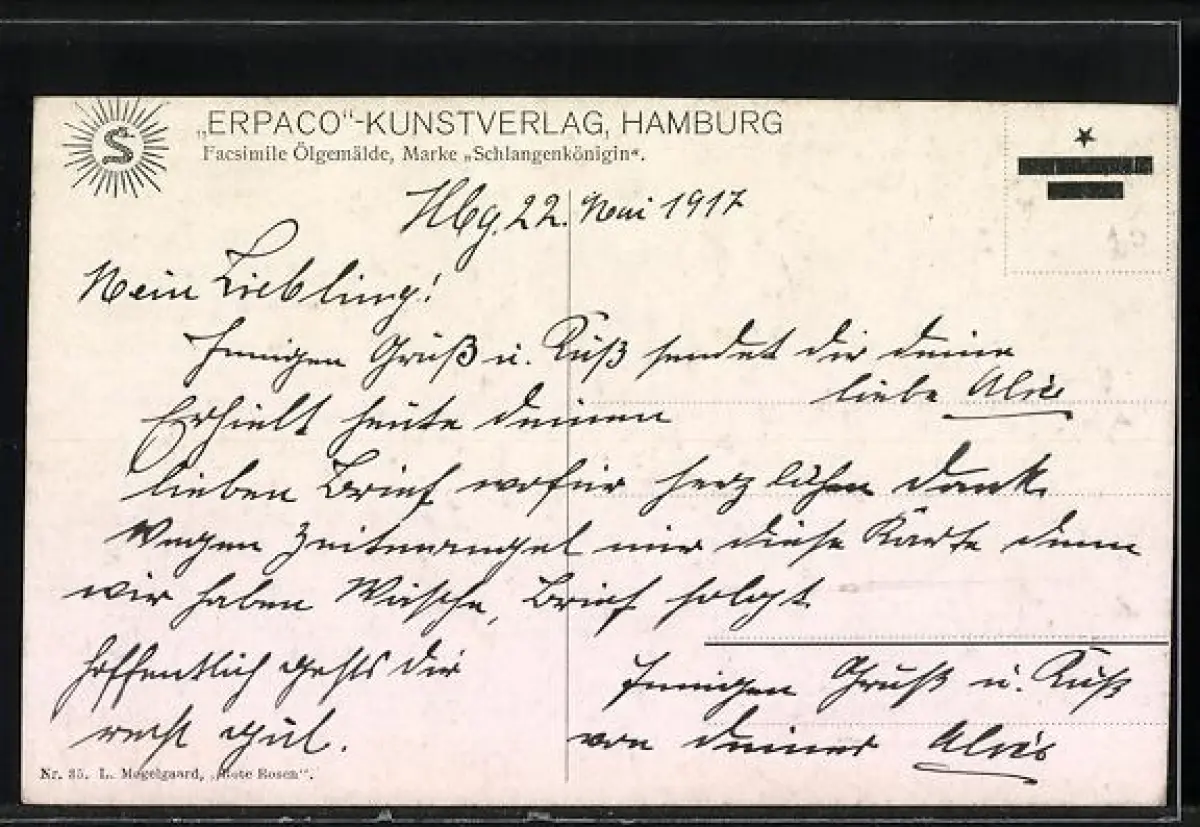 „ERPACO"-KUNSTVERLAG, HAMBURG
Facsimile Ölgemälde, Marke „Schlangenkönigin“.
S
Hbg. 22. Mai 1917
Mein Liebling!
Innigen Gruß u. Kuß sendet dir deine
liebe
Erhielt heute deinen
lieben Brief wofür herzlichen Dank.
Wegen Zeitmangel nur diese Karte denn
wir haben Wäsche, Brief folgt
Hoffentlich gehts dir
recht gut.
Innigen Gruß u. Kuß
von deiner
Nr. 35. L. Mogelgaard, „Rote Rosen“.